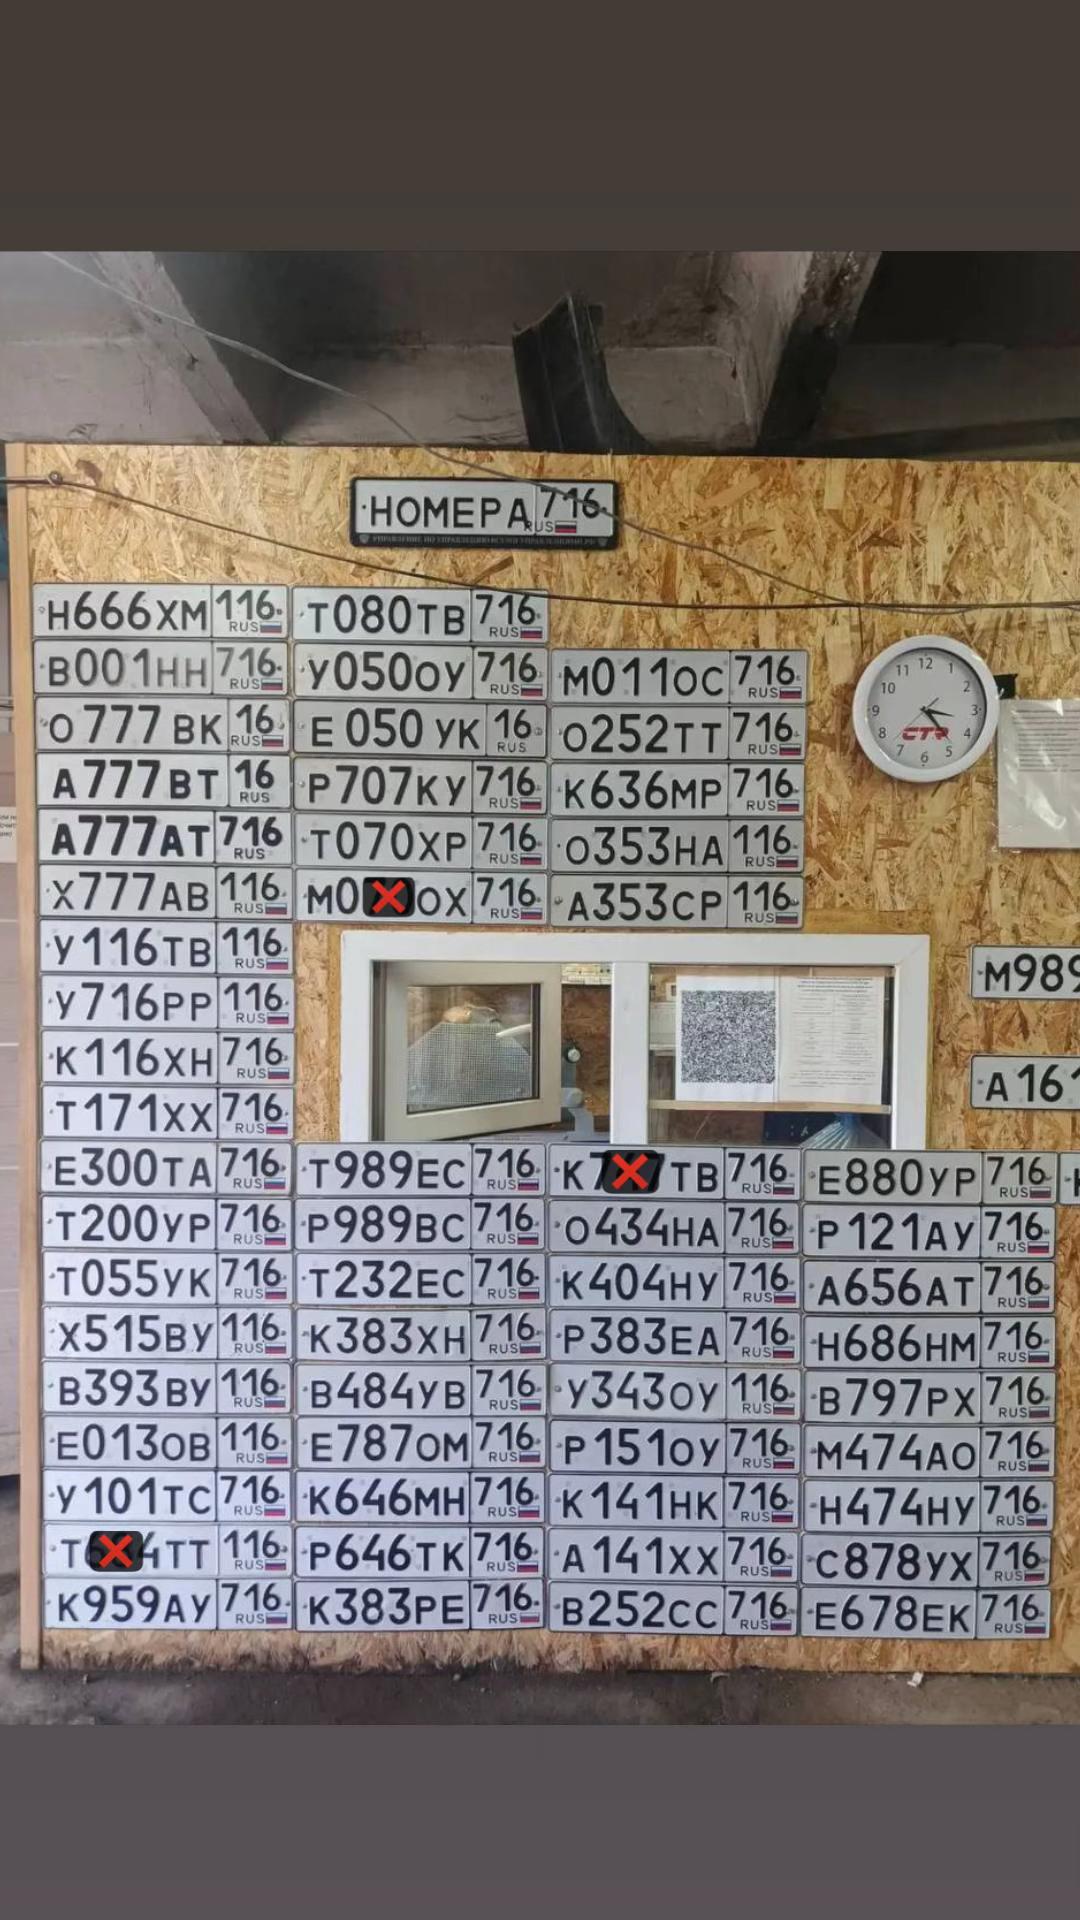 НОМЕРА 716 RUS
УПРАВЛЕНИЕ ПО УПРАВЛЕНИЮ ВСЕМИ УПРАВЛЕНИЯМИ РФ
Н666ХМ 116 RUS
Т080ТВ 716 RUS
В001НН 716 RUS
У050ОУ 716 RUS
М011ОС 716 RUS
О777ВК 16 RUS
Е050УК 16 RUS
О252ТТ 716 RUS
А777ВТ 16 RUS
Р707КУ 716 RUS
К636МР 716 RUS
А777АТ 716 RUS
Т070ХР 716 RUS
О353НА 116 RUS
Х777АВ 116 RUS
М0 ОХ 716 RUS
А353СР 116 RUS
11 12 1
10 2
9 3
8 4
7 6 5
CTR
У116ТВ 116 RUS
У716РР 116 RUS
К116ХН 716 RUS
Т171ХХ 716 RUS
М989
А16
Е300ТА 716 RUS
Т989ЕС 716 RUS
К7 ТВ 716 RUS
Е880УР 716 RUS
Т200УР 716 RUS
Р989ВС 716 RUS
О434НА 716 RUS
Р121АУ 716 RUS
Т055УК 716 RUS
Т232ЕС 716 RUS
К404НУ 716 RUS
А656АТ 716 RUS
Х515ВУ 116 RUS
К383ХН 716 RUS
Р383ЕА 716 RUS
Н686НМ 716 RUS
В393ВУ 116 RUS
В484УВ 716 RUS
У343ОУ 116 RUS
В797РХ 716 RUS
Е013ОВ 116 RUS
Е787ОМ 716 RUS
Р151ОУ 716 RUS
М474АО 716 RUS
У101ТС 716 RUS
К646МН 716 RUS
К141НК 716 RUS
Н474НУ 716 RUS
Т 4ТТ 116 RUS
Р646ТК 716 RUS
А141ХХ 716 RUS
С878УХ 716 RUS
К959АУ 716 RUS
К383РЕ 716 RUS
В252СС 716 RUS
Е678ЕК 716 RUS